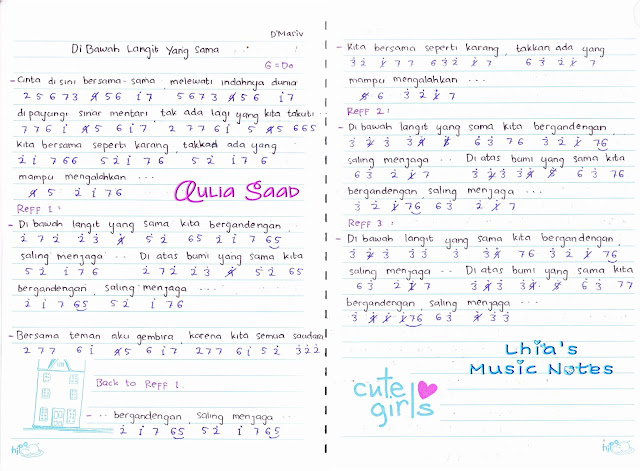 D'Masiv
Di Bawah Langit Yang Sama ...
G = Do
- Cinta di sini bersama-sama, melewati indahnya dunia
2 5 6 7 3 4 5 6 i 7 5 6 7 3 4 5 6 i 7
dipayungi sinar mentari, tak ada lagi yang kita takuti
7 7 6 i 4 5 6 i 7 2 7 7 6 i 5 4 5 6 6 5
Kita bersama seperti karang, takkan ada yang
2 i 7 6 6 5 2 i 7 6 5 2 i 7 6
mampu mengalahkan ...
4 5 2 i 7 6
Aulia Saad
Reff 1 :
- Di bawah langit yang sama kita bergandengan,
2 7 2 2 3 4 5 2 6 5 2 i 7 6 5
saling menjaga ... Di atas bumi yang sama kita
5 2 i 7 6 2 7 2 2 3 4 5 2 6 5
bergandengan, saling menjaga ....
2 i 7 6 5 5 2 i 7 6
- Bersama teman aku gembira, karena kita semua saudara
2 7 7 6 i 4 5 6 i 7 2 7 7 6 i 5 2 3 2 2
Back to Reff 1.
- ... bergandengan, saling menjaga
2 i 7 6 5 5 2 i 7 6 5
hjpe
- Kita bersama seperti karang, takkan ada yang
3 2 i 7 7 6 3 2 i 7 6 3 2 i 7
mampu mengalahkan ...
6 3 2 i 7
Reff 2 :
- Di bawah langit yang sama kita bergandengan
saling menjaga ... Di atas bumi yang sama kita
bergandengan, saling menjaga ...
Reff 3 :
- Di bawah langit yang sama kita bergandengan,
saling menjaga ... Di atas bumi yang sama kita
bergandengan, saling menjaga ...
Lhia's
Music Notes
cute
girls